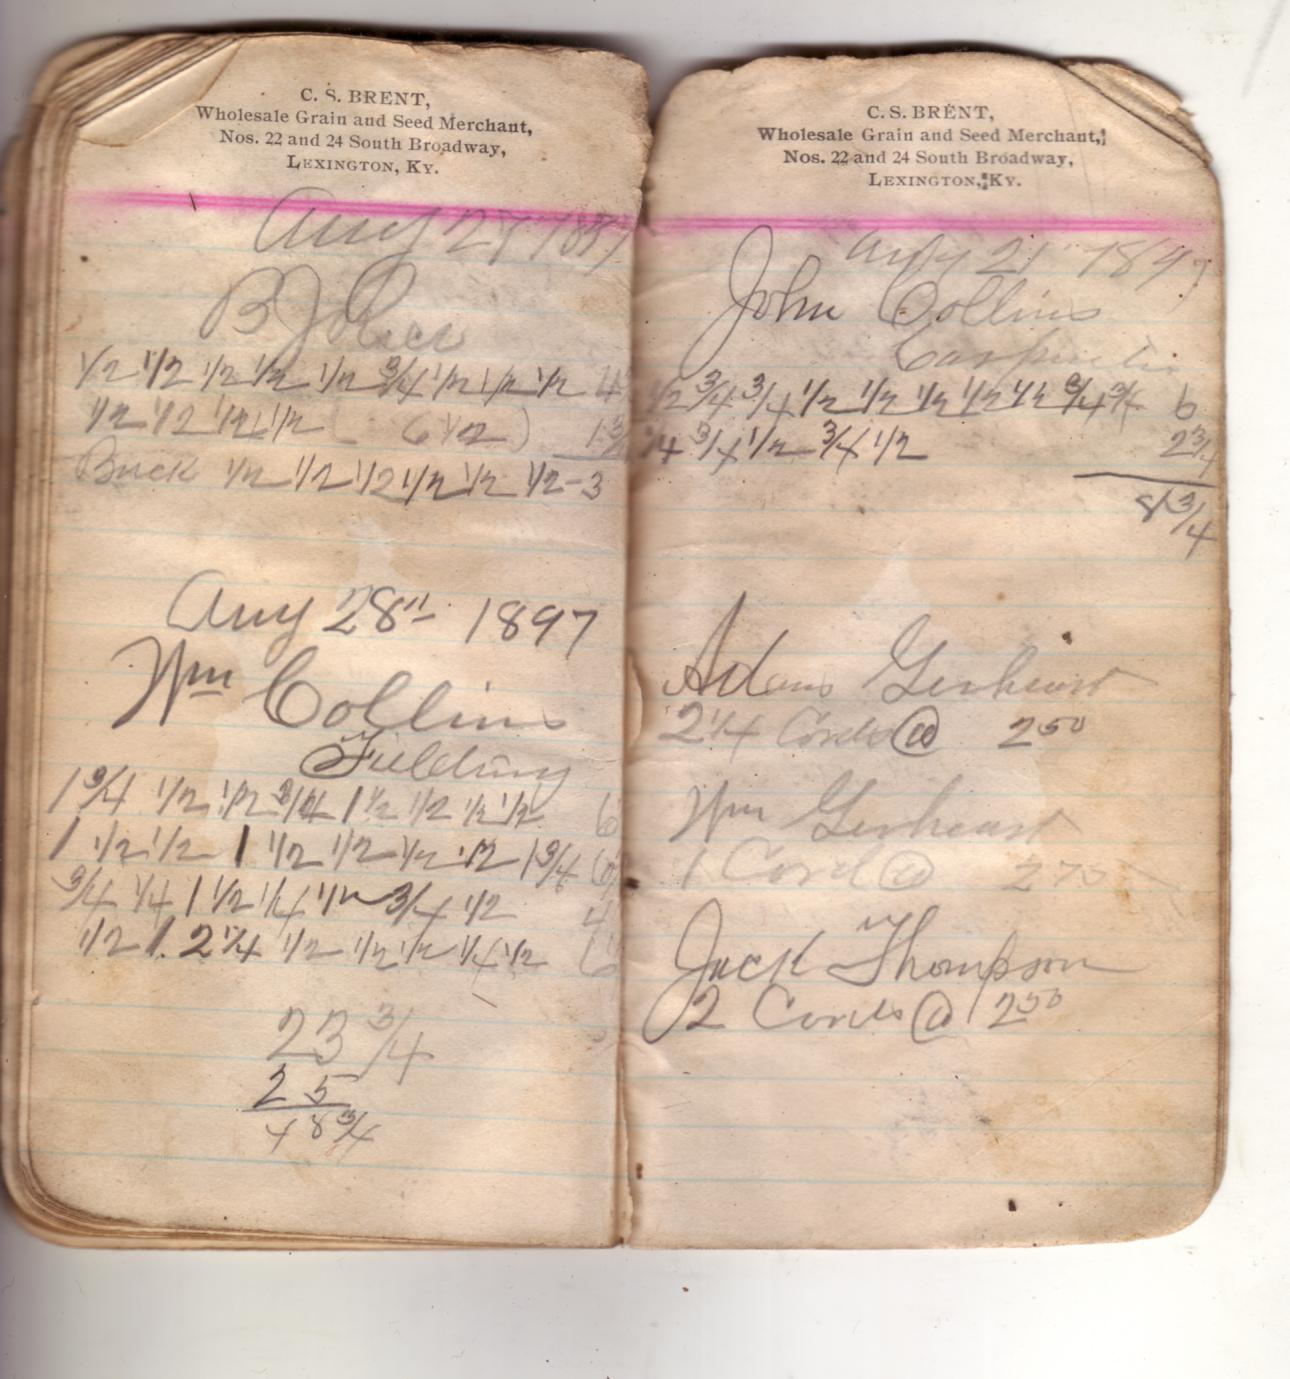 C. S. BRENT,
Wholesale Grain and Seed Merchant,
Nos. 22 and 24 South Broadway,
LEXINGTON, KY.
Aug 27 1897
B
1/2 1/2 1/2 1/2 1/2 3/4 1/2 1/2 1/2 4
1/2 1/2 1/2 1/2 ( 6 1/2 ) 1 3/
Buck 1/2 1/2 1/2 1/2 1/2 1/2 - 3
Aug 28" 1897
Wm Collins
Fielding
1 3/4 1/2 1/2 3/4 1 1/2 1/2 1/2 1/2 6
1 1/2 1/2 1 1/2 1/2 1/2 1/2 1 3/4 6
3/4 1/4 1 1/2 1/4 1/2 3/4 1/2 4
1/2 1. 2 1/4 1/2 1/2 1/2 1/4 1/2 6
23 3/4
25
48 3/4
C. S. BRENT,
Wholesale Grain and Seed Merchant,
Nos. 22 and 24 South Broadway,
LEXINGTON, KY.
21 1897
John Collins
1/2 3/4 3/4 1/2 1/2 1/2 1/2 1/2 3/4 3/4 6
3/4 3/4 1/2 3/4 1/2 2 3/4
8 3/4
Adam Gerheart
2 1/4 Cords @ 2 50
Wm Gerheart
1 Cord @ 2 75
Jack Thompson
2 Cords @ 2 50